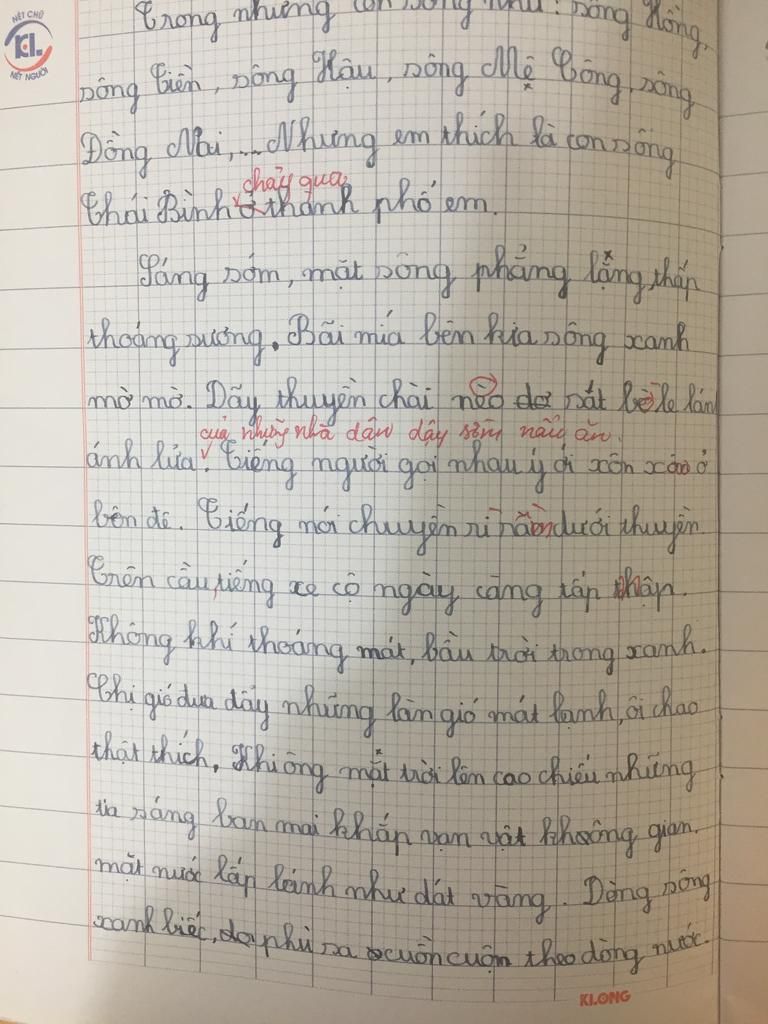 NÉT CHỮ
KL
NẾT NGƯỜI
Trong những con sông như: sông Hồng,
sông Tiền, sông Hậu, sông Mê Công, sông
Đồng Nai,... Nhưng em thích là con sông
chảy qua
Thái Bình ở thành phố em.
Sáng sớm, mặt sông phẳng lặng, thấp
thoáng sương. Bãi mía bên kia sông xanh
mờ mờ. Dãy thuyền chài nào sát bờ le lói
của những nhà dân dậy sớm nấu ăn.
ánh lửa. Tiếng người gọi nhau ý ới xôn xao ở
bên đê. Tiếng nói chuyện rì rầm dưới thuyền.
Trên cầu, tiếng xe cộ ngày càng tấp nhập.
Không khí thoáng mát, bầu trời trong xanh.
Chị gió đưa đẩy những làn gió mát lạnh, ôi chao
thật thích. Khi ông mặt trời lên cao chiếu những
tia sáng ban mai khắp vạn vật không gian.
mặt nước lấp lánh như dát vàng. Dòng sông
xanh biếc, phù sa cuồn cuộn theo dòng nước.
KLONG